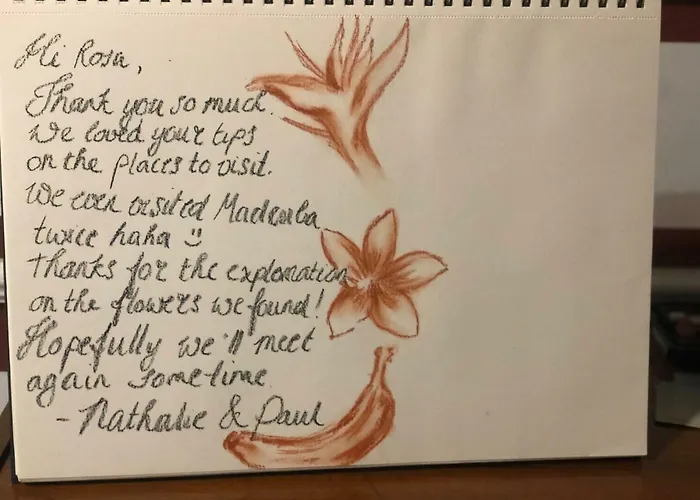 Hi Rosa,
Thank you so much.
We loved your tips
on the places to visit.
We even visited Maderaba
twice haha :)
thanks for the explanation
on the flowers we found!
Hopefully we'll meet
again sometime
- Nathalie & Paul